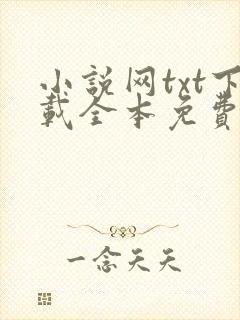 小説网txt下
載全本免費
一念天天